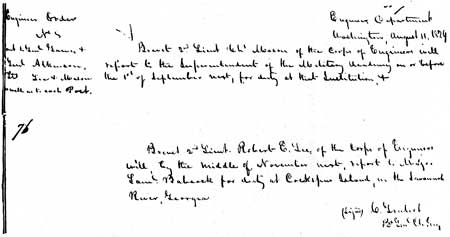 Engineer Order
No 8
Engineer Department
Washington, August 11, 1829
Brevet 2d Lieut. Chs Mason of the Corps of Engineers will
report to the Superintendent of the Military Academy on or before
the 1st of September next, for duty at that Institution, &
Genl Atkinson,
Lee & Mason
each at each Post.
76
Brevet 2d Lieut. Robert E. Lee, of the Corps of Engineers
will, by the middle of November next, report to Major
Saml Babcock for duty at Cockspur Island, in the Savannah
River, Georgia
(Signed) C. Gratiot
Bt Genl Ch. Eng